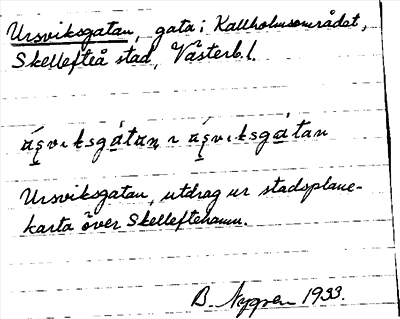 Ursviksgatan, gata i Kallholmsområdet,
Skellefteå stad, Västerb. l.
Ursviksgatan, utdrag ur stadsplane-
karta över Skelleftehamn.
B. Nygren 1933.